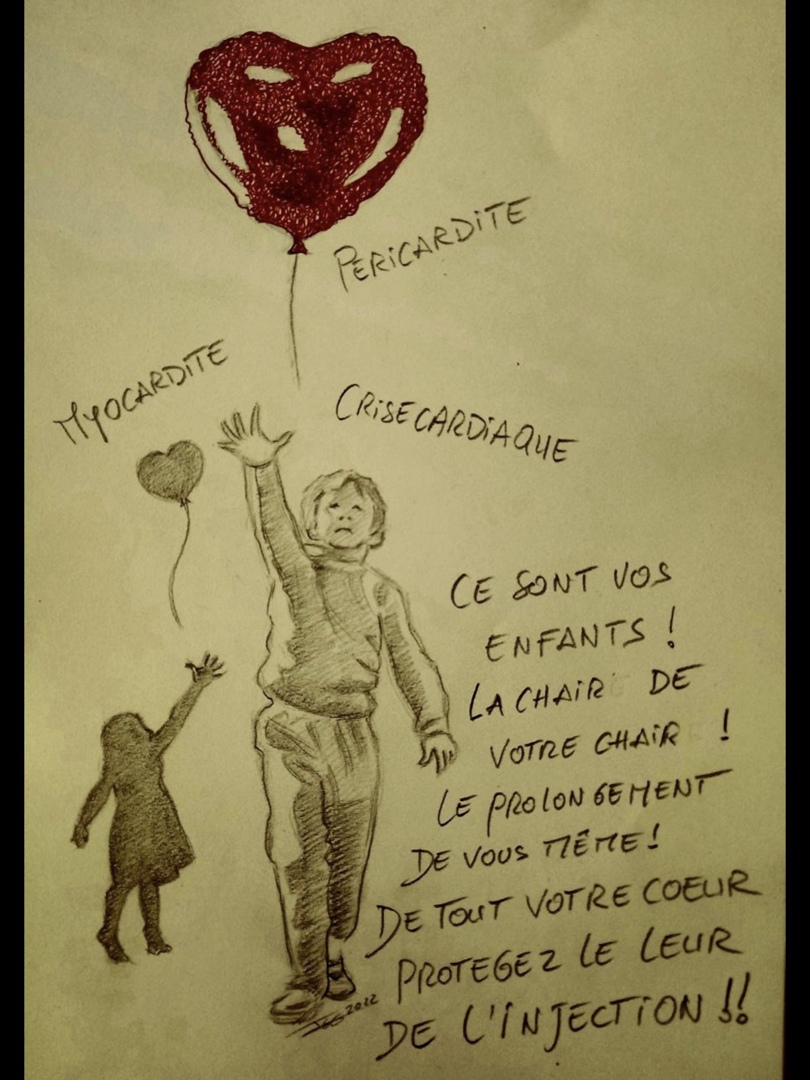 PERICARDITE
MYOCARDITE
CRISECARDiAQUE
CE SONT VOS
ENFANTS !
LA CHAIR DE
VOTRE CHAIR !
LE PROLONGEMENT
DE VOUS MÊME !
DE TOUT VOTRE COEUR
PROTEGEZ LE LEUR
DE L'iNJECTiON !!
2022